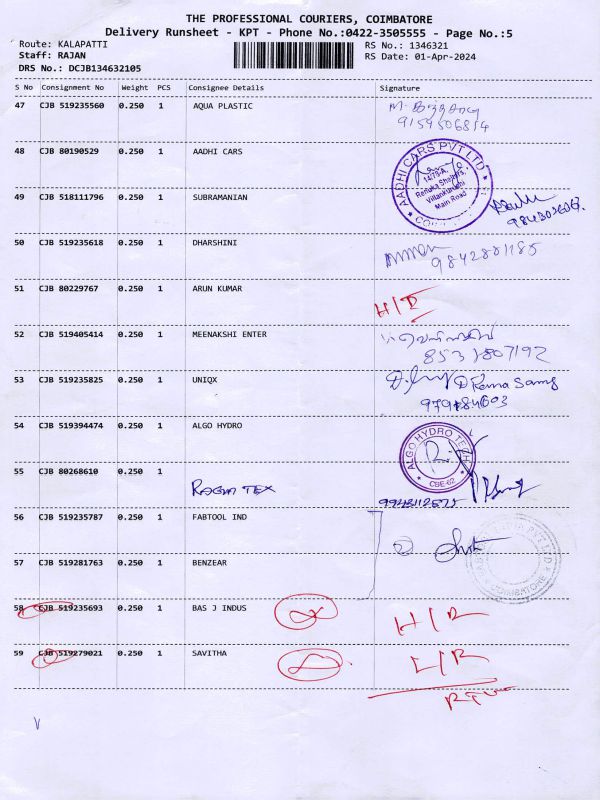 THE PROFESSIONAL COURIERS, COIMBATORE
Delivery Runsheet - KPT - Phone No.:0422-3505555 - Page No.:5
Route: KALAPATTI RS No.: 1346321
Staff: RAJAN RS Date: 01-Apr-2024
DRS No.: DCJB134632105
S No Consignment No Weight PCS Consignee Details Signature
47 CJB 519235560 0.250 1 AQUA PLASTIC
9159506814
48 CJB 80190529 0.250 1 AADHI CARS
AADHI CARS PVT LTD
14/78-A,
Renuka Shelters,
Vilankurichi
Main Road
49 CJB 518111796 0.250 1 SUBRAMANIAN
50 CJB 519235618 0.250 1 DHARSHINI
9842881185
51 CJB 80229767 0.250 1 ARUN KUMAR
52 CJB 519405414 0.250 1 MEENAKSHI ENTER
8531807192
53 CJB 519235825 0.250 1 UNIQX
D Rama Samy
54 CJB 519394474 0.250 1 ALGO HYDRO
ALGO HYDRO TECH
CBE-62
55 CJB 80268610 0.250 1
TEX
56 CJB 519235787 0.250 1 FABTOOL IND
57 CJB 519281763 0.250 1 BENZEAR
PVT LTD
COIMBATORE
58 CJB 519235693 0.250 1 BAS J INDUS H/R
59 CJB 519279021 0.250 1 SAVITHA L/R